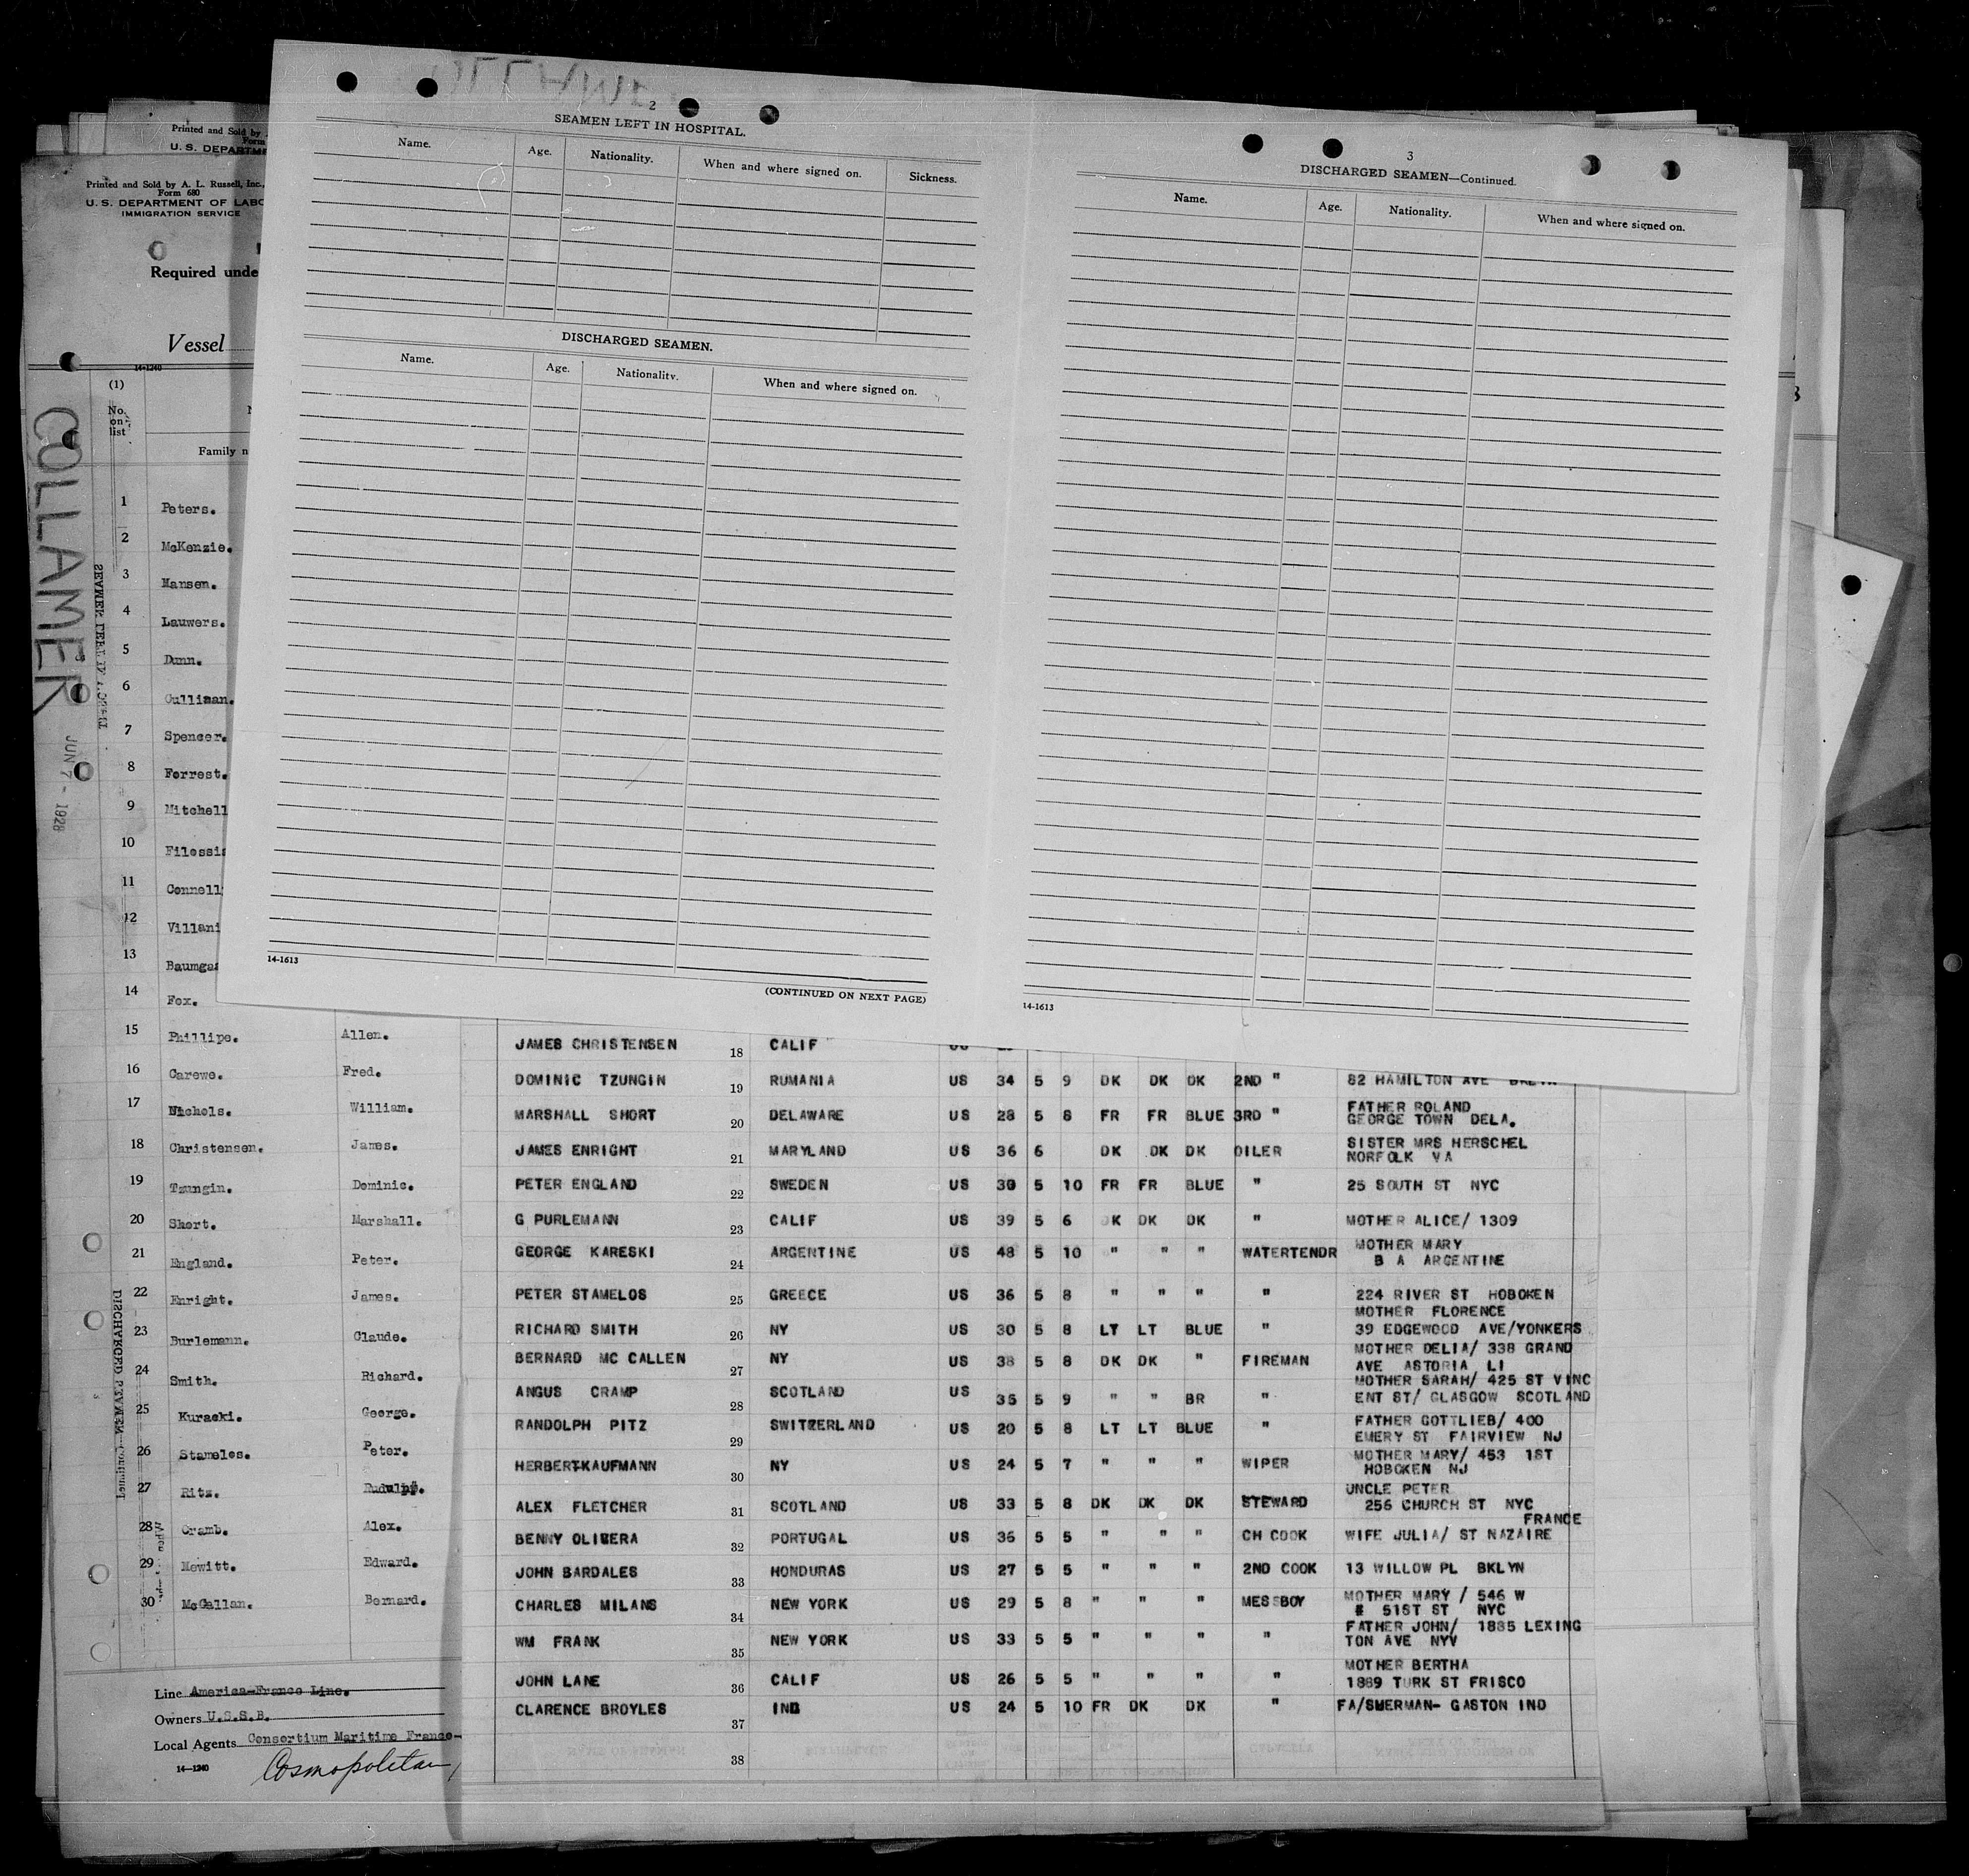 2
SEAMEN LEFT IN HOSPITAL.
Name. Age. Nationality. When and where signed on. Sickness.
DISCHARGED SEAMEN.
Name. Age. Nationality. When and where signed on.
14-1613
(CONTINUED ON NEXT PAGE)
3
DISCHARGED SEAMEN—Continued.
Name. Age. Nationality. When and where signed on.
14-1613
Printed and Sold by
Form
U. S. DEPARTME
Printed and Sold by A. L. Russell, Inc.,
Form 680
U. S. DEPARTMENT OF LABO
IMMIGRATION SERVICE
Required unde
Vessel
14-1240
(1)
No. on list
Family n
COLLAMER
JUN 7 - 1928
1 Peters.
2 McKenzie.
3 Mansen.
4 Lauwers.
5 Dunn.
6 Cullinan.
7 Spencer.
8 Forrest.
9 Mitchell
10 Filossi
11 Connell
12 Villani
13 Baumga
14 Fox.
15 Phillips. Allen.
16 Carewe. Fred.
17 Nichols. William.
18 Christensen. James.
19 Tzungin. Dominic.
20 Short. Marshall.
21 England. Peter.
22 Enright. James.
23 Burlemann. Claude.
24 Smith. Richard.
25 Kuracki. George.
26 Stamelos. Peter.
27 Ritz. Rudulph.
28 Cramb. Alex.
29 Mewitt. Edward.
30 McCallan. Bernard.
Line America-France Line.
Owners U.S.S.B.
Local Agents Consortium Maritime Franco-
14-1240
Cosmopolitan,
JAMES CHRISTENSEN 18 CALIF US
DOMINIC TZUNGIN 19 RUMANIA US 34 5 9 DK DK DK 2ND " 82 HAMILTON AVE BKLYN
MARSHALL SHORT 20 DELAWARE US 28 5 8 FR FR BLUE 3RD " FATHER ROLAND
GEORGE TOWN DELA.
JAMES ENRIGHT 21 MARYLAND US 36 6 DK DK DK OILER SISTER MRS HERSCHEL
NORFOLK VA
PETER ENGLAND 22 SWEDEN US 30 5 10 FR FR BLUE " 25 SOUTH ST NYC
G PURLEMANN 23 CALIF US 39 5 6 DK DK DK " MOTHER ALICE/ 1309
GEORGE KARESKI 24 ARGENTINE US 48 5 10 " " " WATERTENDR MOTHER MARY
B A ARGENTINE
PETER STAMELOS 25 GREECE US 36 5 8 " " " " 224 RIVER ST HOBOKEN
MOTHER FLORENCE
RICHARD SMITH 26 NY US 30 5 8 LT LT BLUE " 39 EDGEWOOD AVE/YONKERS
BERNARD MC CALLEN 27 NY US 38 5 8 DK DK " FIREMAN MOTHER DELIA/ 338 GRAND
AVE ASTORIA LI
ANGUS CRAMP 28 SCOTLAND US 35 5 9 " " BR " MOTHER SARAH/ 425 ST VINC
ENT ST/ GLASGOW SCOTLAND
RANDOLPH PITZ 29 SWITZERLAND US 20 5 8 LT LT BLUE " FATHER GOTTLIEB/ 400
EMERY ST FAIRVIEW NJ
HERBERT-KAUFMANN 30 NY US 24 5 7 " " " WIPER MOTHER MARY/ 453 1ST
HOBOKEN NJ
ALEX FLETCHER 31 SCOTLAND US 33 5 8 DK DK DK STEWARD UNCLE PETER
256 CHURCH ST NYC
FRANCE
BENNY OLIVERA 32 PORTUGAL US 36 5 5 " " " CH COOK WIFE JULIA/ ST NAZAIRE
JOHN BARDALES 33 HONDURAS US 27 5 5 " " " 2ND COOK 13 WILLOW PL BKLYN
CHARLES MILANS 34 NEW YORK US 29 5 8 " " " MESSBOY MOTHER MARY / 546 W
# 51ST ST NYC
WM FRANK 35 NEW YORK US 33 5 5 " " " " FATHER JOHN/ 1885 LEXING
TON AVE NYV
JOHN LANE 36 CALIF US 26 5 5 " " " " MOTHER BERTHA
1889 TURK ST FRISCO
CLARENCE BROYLES 37 IND US 24 5 10 FR DK DK " FA/SHERMAN- GASTON IND
38